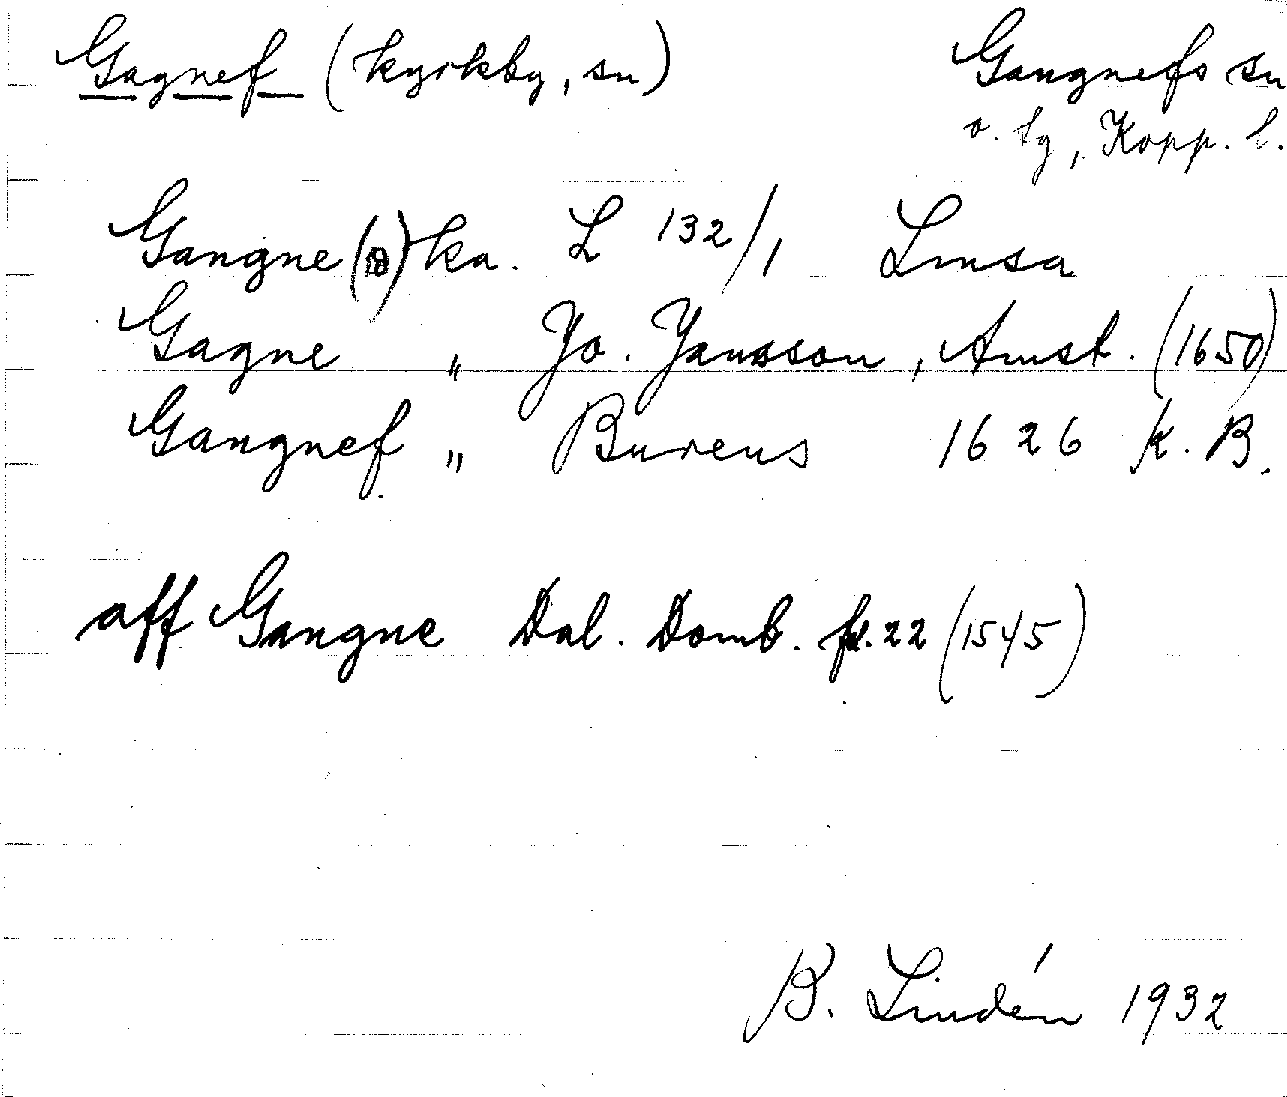 Gagnef (kyrkby, sn)
Gangnefs sn
o. by, Kopp. l.
Gangne ( ) ka. L 132/1 Linsa
Gagne „ Jo. Jansson, Amst. (1650)
Gangnef „ Bureus 1626 K. B.
aff Gangne Dal. Domb. fol. 22 (1545)
B. Lindén 1932